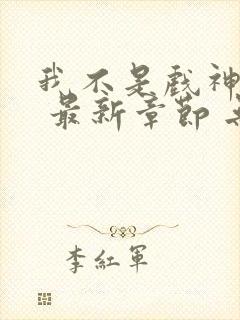 我不是戲神
最新章節
李紅軍